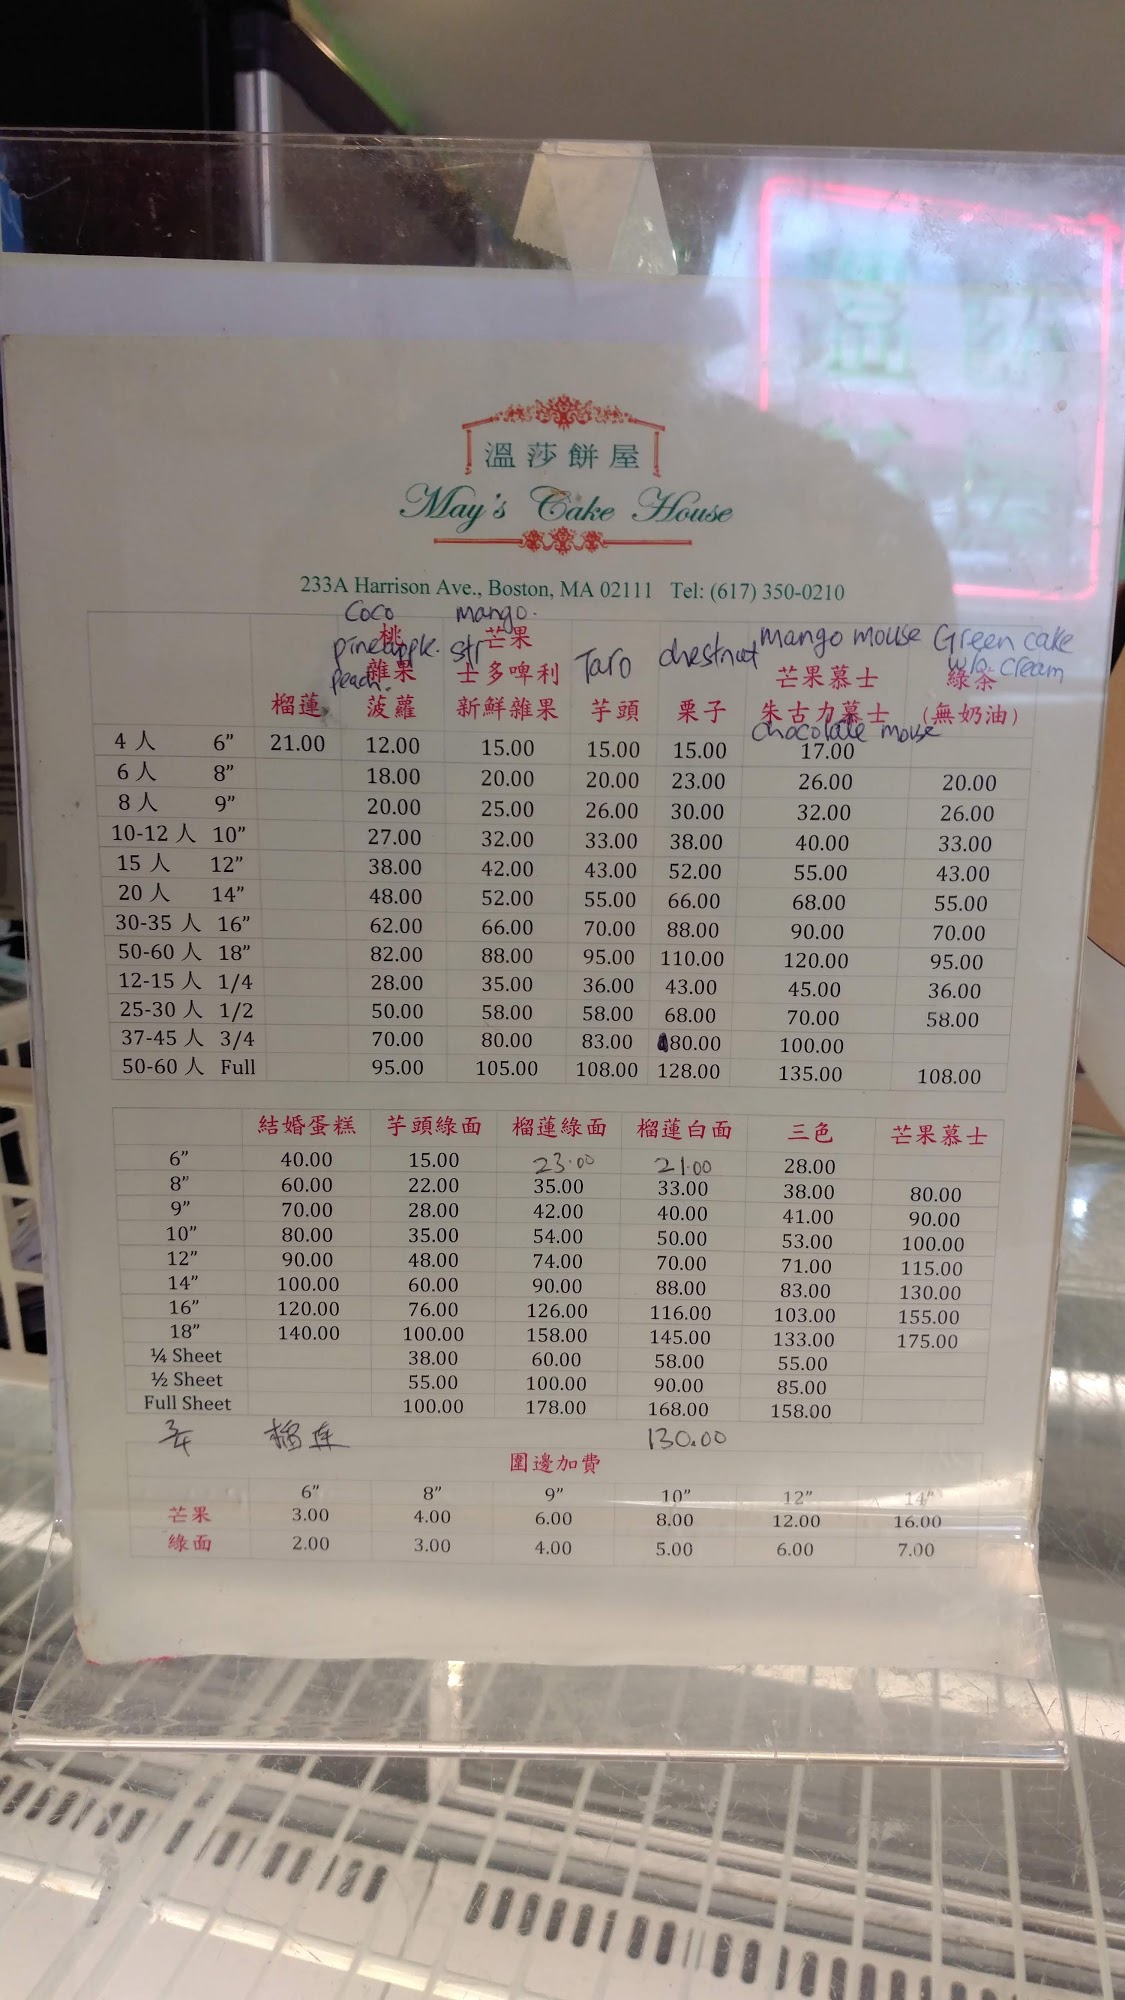 溫莎餅屋
May's Cake House
233A Harrison Ave., Boston, MA 02111 Tel: (617) 350-0210
Coco mango.
桃 芒果 mango mouse Green cake
pineapple. str Taro chestnut w/o cream
雜果 士多啤利 芒果慕士 綠茶
peach.
榴蓮 菠蘿 新鮮雜果 芋頭 栗子 朱古力慕士 (無奶油)
chocolate mouse
4 人 6" 21.00 12.00 15.00 15.00 15.00 17.00
6 人 8" 18.00 20.00 20.00 23.00 26.00 20.00
8 人 9" 20.00 25.00 26.00 30.00 32.00 26.00
10-12 人 10" 27.00 32.00 33.00 38.00 40.00 33.00
15 人 12" 38.00 42.00 43.00 52.00 55.00 43.00
20 人 14" 48.00 52.00 55.00 66.00 68.00 55.00
30-35 人 16" 62.00 66.00 70.00 88.00 90.00 70.00
50-60 人 18" 82.00 88.00 95.00 110.00 120.00 95.00
12-15 人 1/4 28.00 35.00 36.00 43.00 45.00 36.00
25-30 人 1/2 50.00 58.00 58.00 68.00 70.00 58.00
37-45 人 3/4 70.00 80.00 83.00 80.00 100.00
50-60 人 Full 95.00 105.00 108.00 128.00 135.00 108.00
結婚蛋糕 芋頭綠面 榴蓮綠面 榴蓮白面 三色 芒果慕士
6" 40.00 15.00 23.00 21.00 28.00
8" 60.00 22.00 35.00 33.00 38.00 80.00
9" 70.00 28.00 42.00 40.00 41.00 90.00
10" 80.00 35.00 54.00 50.00 53.00 100.00
12" 90.00 48.00 74.00 70.00 71.00 115.00
14" 100.00 60.00 90.00 88.00 83.00 130.00
16" 120.00 76.00 126.00 116.00 103.00 155.00
18" 140.00 100.00 158.00 145.00 133.00 175.00
¼ Sheet 38.00 60.00 58.00 55.00
½ Sheet 55.00 100.00 90.00 85.00
Full Sheet 100.00 178.00 168.00 158.00
3/4 榴连 130.00
圍邊加費
6" 8" 9" 10" 12" 14"
芒果 3.00 4.00 6.00 8.00 12.00 16.00
綠面 2.00 3.00 4.00 5.00 6.00 7.00